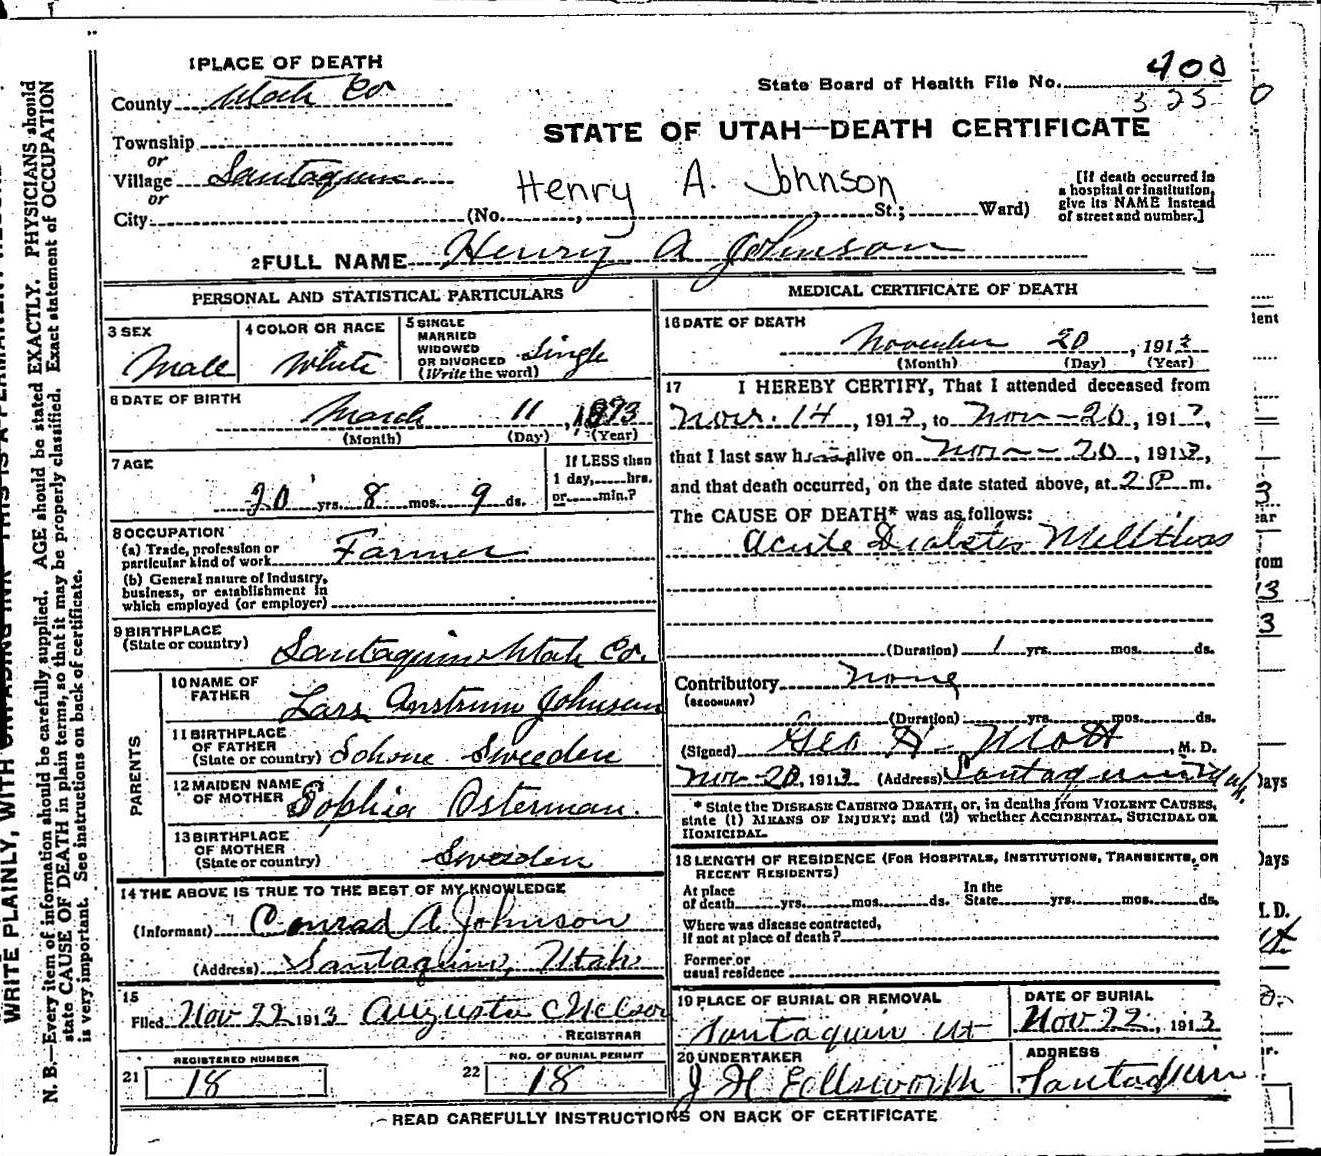 1 PLACE OF DEATH
County Utah Co
State Board of Health File No. 400
325
Township
or
Village Santaquin
or
City (No. , St.; Ward)
STATE OF UTAH—DEATH CERTIFICATE
Henry A. Johnson
[If death occurred in
a hospital or institution,
give its NAME instead
of street and number.]
2 FULL NAME Henry A Johnson
PERSONAL AND STATISTICAL PARTICULARS
3 SEX
Male
4 COLOR OR RACE
White
5 SINGLE
MARRIED
WIDOWED
OR DIVORCED
(Write the word)
Single
6 DATE OF BIRTH
March 11, 1893
(Month) (Day) (Year)
7 AGE
20 yrs. 8 mos. 9 ds.
If LESS than
1 day, hrs.
or min.?
8 OCCUPATION
(a) Trade, profession or
particular kind of work Farmer
(b) General nature of Industry,
business, or establishment in
which employed (or employer)
9 BIRTHPLACE
(State or country) Santaquin Utah Co.
PARENTS
10 NAME OF
FATHER Lars Anstrum Johnson
11 BIRTHPLACE
OF FATHER
(State or country) Sweeden
12 MAIDEN NAME
OF MOTHER Sophia Osterman.
13 BIRTHPLACE
OF MOTHER
(State or country) Sweeden
14 THE ABOVE IS TRUE TO THE BEST OF MY KNOWLEDGE
(Informant) Conrad A Johnson
(Address) Santaquin, Utah
15
Filed Nov 22 1913 Augusta C Nelson
REGISTRAR
21 REGISTERED NUMBER
18
22 NO. OF BURIAL PERMIT
18
MEDICAL CERTIFICATE OF DEATH
16 DATE OF DEATH
November 20, 1913
(Month) (Day) (Year)
17 I HEREBY CERTIFY, That I attended deceased from
Nov. 14, 1913, to Nov - 20, 1913,
that I last saw him alive on Nov - 20, 1913,
and that death occurred, on the date stated above, at 2 P m.
The CAUSE OF DEATH* was as follows:
Acute Diabetes Mellitus
(Duration) 1 yrs. mos. ds.
Contributory None
(SECONDARY)
(Duration) yrs. mos. ds.
(Signed) Geo H Mott, M. D.
Nov 20, 1913 (Address) Santaquin Utah.
* State the DISEASE CAUSING DEATH, or, in deaths from VIOLENT CAUSES,
state (1) MEANS OF INJURY; and (2) whether ACCIDENTAL, SUICIDAL OR
HOMICIDAL.
18 LENGTH OF RESIDENCE (FOR HOSPITALS, INSTITUTIONS, TRANSIENTS, OR
RECENT RESIDENTS)
At place
of death yrs. mos. ds.
In the
State yrs. mos. ds.
Where was disease contracted,
if not at place of death?
Former or
usual residence
19 PLACE OF BURIAL OR REMOVAL
Santaquin Ut
DATE OF BURIAL
Nov 22, 1913
20 UNDERTAKER
J H Ellsworth
ADDRESS
Santaquin
READ CAREFULLY INSTRUCTIONS ON BACK OF CERTIFICATE
N. B.—Every item of information should be carefully supplied. AGE should be stated EXACTLY. PHYSICIANS should
state CAUSE OF DEATH in plain terms, so that it may be properly classified. Exact statement of OCCUPATION
is very important. See instructions on back of certificate.